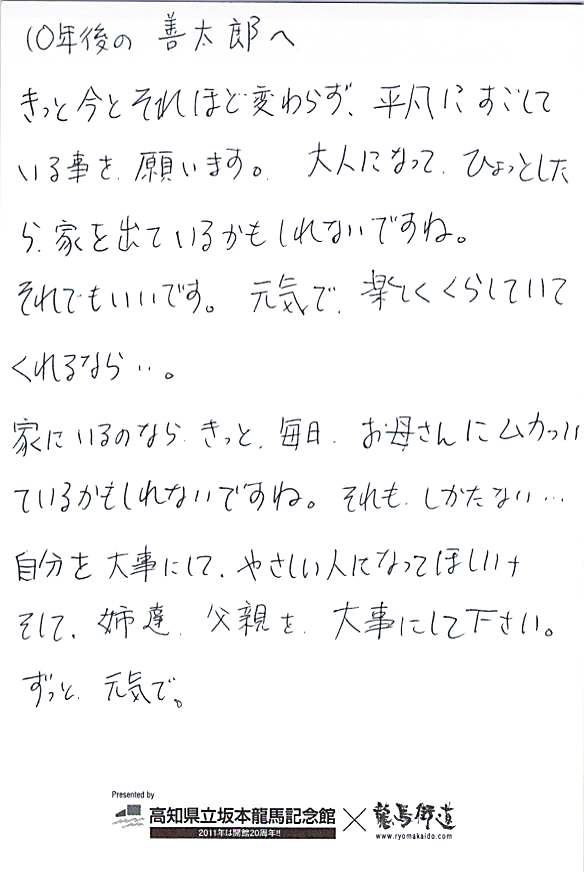 10年後の 善太郎へ
きっと今とそれほど変わらず、平凡にすごして
いる事を、願います。 大人になって、ひょっとした
ら、家を出ているかもしれないですね。
それでもいいです。 元気で、楽しくくらしていて
くれるなら…。
家にいるのなら、きっと、毎日、お母さんにムカつい
ているかもしれないですね。それも、しかたない…
自分を大事にして、やさしい人になってほしい+
そして、姉達、父親を、大事にして下さい。
ずっと、元気で。
Presented by
高知県立坂本龍馬記念館 × 龍馬街道
2011年は開館20周年!! www.ryomakaido.com